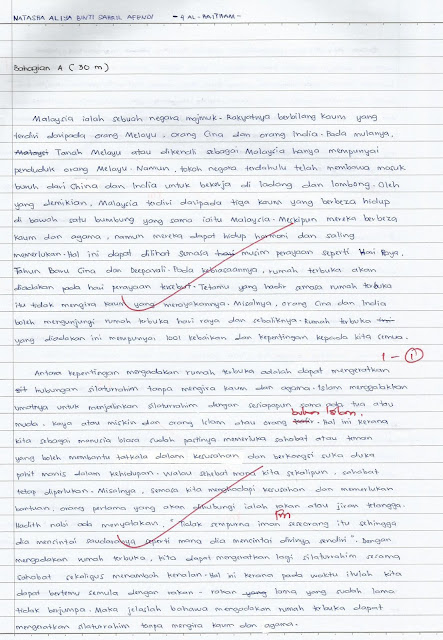 NATASHA ALIYA BINTI SAHRIL AFENDI - 4 AL-HAITHAM -
Bahagian A ( 30 m )
Malaysia ialah sebuah negara majmuk. Rakyatnya berbilang kaum yang
terdiri daripada orang Melayu, orang Cina dan orang India. Pada mulanya,
Malaysi Tanah Melayu atau dikenali sebagai Malaysia hanya mempunyai
penduduk orang Melayu. Namun, tokoh negara terdahulu telah membawa masuk
buruh dari China dan India untuk bekerja di ladang dan lombong. Oleh
yang demikian, Malaysia terdiri daripada tiga kaum yang berbeza hidup
di bawah satu bumbung yang sama iaitu Malaysia. Meskipun mereka berbeza
kaum dan agama, namun mereka dapat hidup harmoni dan saling
memerlukan. Hal ini dapat dilihat semasa hari musim perayaan seperti Hari Raya,
Tahun Baru Cina dan Deepavali. Pada kebiasaannya, rumah terbuka akan
diadakan pada hari perayaan tersebut. Tetamu yang hadir semasa rumah terbuka
itu tidak mengira kaum yang merayakannya. Misalnya, orang Cina dan India
boleh mengunjungi rumah terbuka hari raya dan sebaliknya. Rumah terbuka
yang diadakan ini mempunyai banyak kebaikan dan kepentingan kepada kita semua.
1 - 1
Antara kepentingan mengadakan rumah terbuka adalah dapat mengeratkan
hubungan silaturrahim tanpa mengira kaum dan agama. Islam menggalakkan
umatnya untuk menjalinkan silaturrahim dengan sesiapapun sama ada tua atau
bukan Islam.
muda, kaya atau miskin dan orang Islam atau orang Hal ini kerana
kita sebagai manusia biasa sudah pastinya memerlukan sahabat atau teman
yang boleh membantu tatkala dalam kesusahan dan berkongsi suka duka
pahit manis dalam kehidupan. Walau sehebat mana kita sekalipun, sahabat
tetap diperlukan. Misalnya, semasa kita menghadapi kesusahan dan memerlukan
bantuan, orang pertama yang akan dihubungi ialah rakan atau jiran tetangga.
Hadith nabi ada menyatakan, "Tidak sempurna iman seseorang itu sehingga
dia mencintai saudaranya seperti mana dia mencintai dirinya sendiri". Dengan
mengadakan rumah terbuka, kita dapat mengeratkan lagi silaturrahim sesama
sahabat sekaligus menambah kenalan. Hal ini kerana pada waktu itulah kita
dapat bertemu semula dengan rakan - rakan yang lama yang sudah lama
tidak berjumpa. Maka jelaslah bahawa mengadakan rumah terbuka dapat
mengeratkan silaturrahim tanpa mengira kaum dan agama.